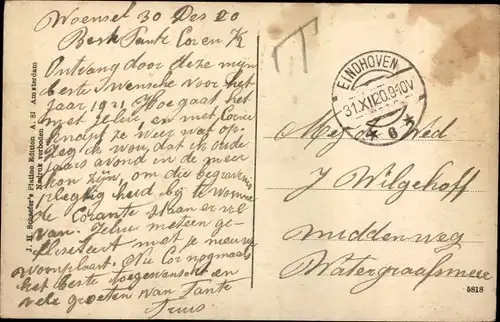 Woensel 30 Des 20
Beste Tante Cor en K
Ontvang door deze mijn
beste wensche voor het
Jaar 1921 Hoe gaat het
met Jelui en met Corrie
knapt ze weg wat op.
Zeg ik wou, dat ik oude
jaars avond in de meer
kon zijn, om die begravenis
plegtig heid bij te wonen
de Corante staan er vol
van. Jelui meteen ge-
fliseteert met je nieuwe
woonplaats. Nu Cor nogmaals
het beste toegewenscht en
vele groeten van Tante
Truus
J. H. Schaefer's Platino Edition A. 81 Amsterdam
Nadruk verboden
T
EINDHOVEN
31.XII20.9-10V
* 6 *
Mej de Wed
J Wilgehoff
middenweg
Watergraafsmeer
5818